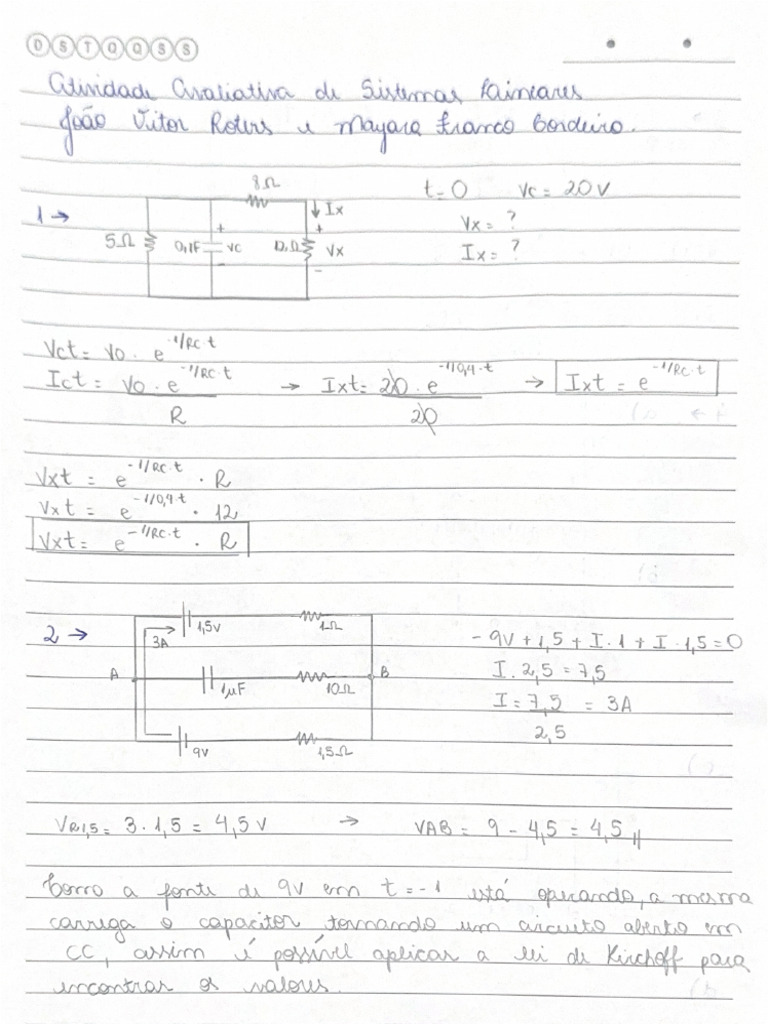 D S T Q Q S S
Atividade Avaliativa de Sistemas Lineares
João Vitor Roters e Mayara Franco Cordeiro.
8Ω
t=0 Vc = 20V
1 → Ix
5Ω 0,1F + VC - 12Ω + Vx -
Vx = ?
Ix = ?
Vct = V0 . e^-1/RC·t
Ict = V0 . e^-1/RC·t / R → Ixt = 20 . e^-1/0,4·t / 20 → Ixt = e^-1/RC·t
Vxt = e^-1/RC·t . R
Vxt = e^-1/0,4·t . 12
Vxt = e^-1/RC·t . R
2 → 1,5V 1Ω
3A
A 1μF 10Ω B
9V 1,5Ω
- 9V + 1,5 + I . 1 + I . 1,5 = 0
I . 2,5 = 7,5
I = 7,5 = 3A
2,5
VR1,5 = 3 . 1,5 = 4,5 V → VAB = 9 - 4,5 = 4,5
Como a fonte de 9V em t = -1 está operando, a mesma
carrega o capacitor, tornando um circuito aberto em
CC, assim é possível aplicar a lei de Kirchoff para
encontrar os valores.